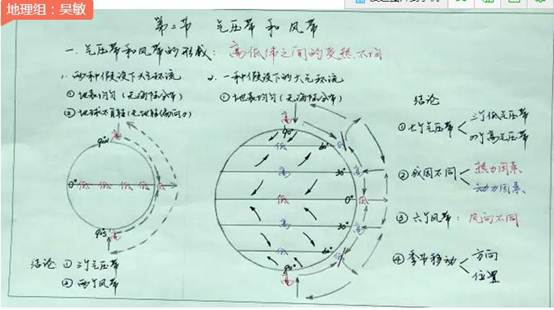 地理组：吴敏
第二节 气压带和风带
一、气压带和风带的形成：高低纬之间的受热不均
1、两种假设下大气环流
①地表均匀（无海陆分布）
②地球不自转（无地转偏向力）
高
90°
0° 低 低 低 低 低
90°
高
结论 ①三个气压带
②两个风带
2、一种假设下的大气环流
①地表均匀（无海陆分布）
高
90°
低 60° 低
高 30° 高
0° 低 0° 低
高 30° 高
低 60° 低
90°
高
结论
①七个气压带 三个低气压带
四个高气压带
②成因不同 热力因素
动力因素
③六个风带：风向不同
④季节移动 方向
位置